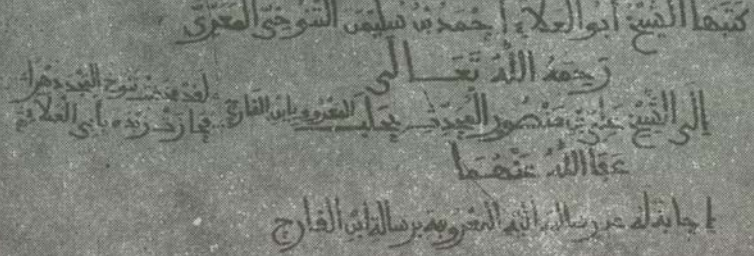 كتبها الشيخ أبو العلاء أحمد بن سليمن التنوخي المعري
رحمه الله تعالى
إلى الشيخ علي بن منصور بحلب المعروف بابن القارح
عفا الله عنهما
إجابة له عن رسالته إليه المعروفة برسالة ابن القارح